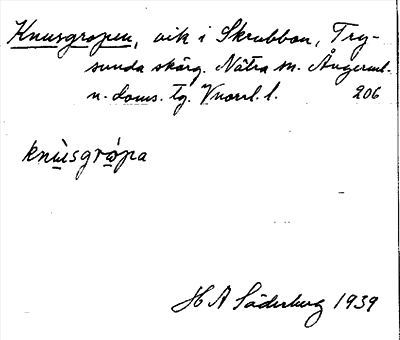 Knusgropen, vik i Skrubban, Try-
sunda skärg. Nätra sn. Ångerml.
n. doms. tg. Vnorrl. l. 206
knùsgrópa
H A Söderberg 1939